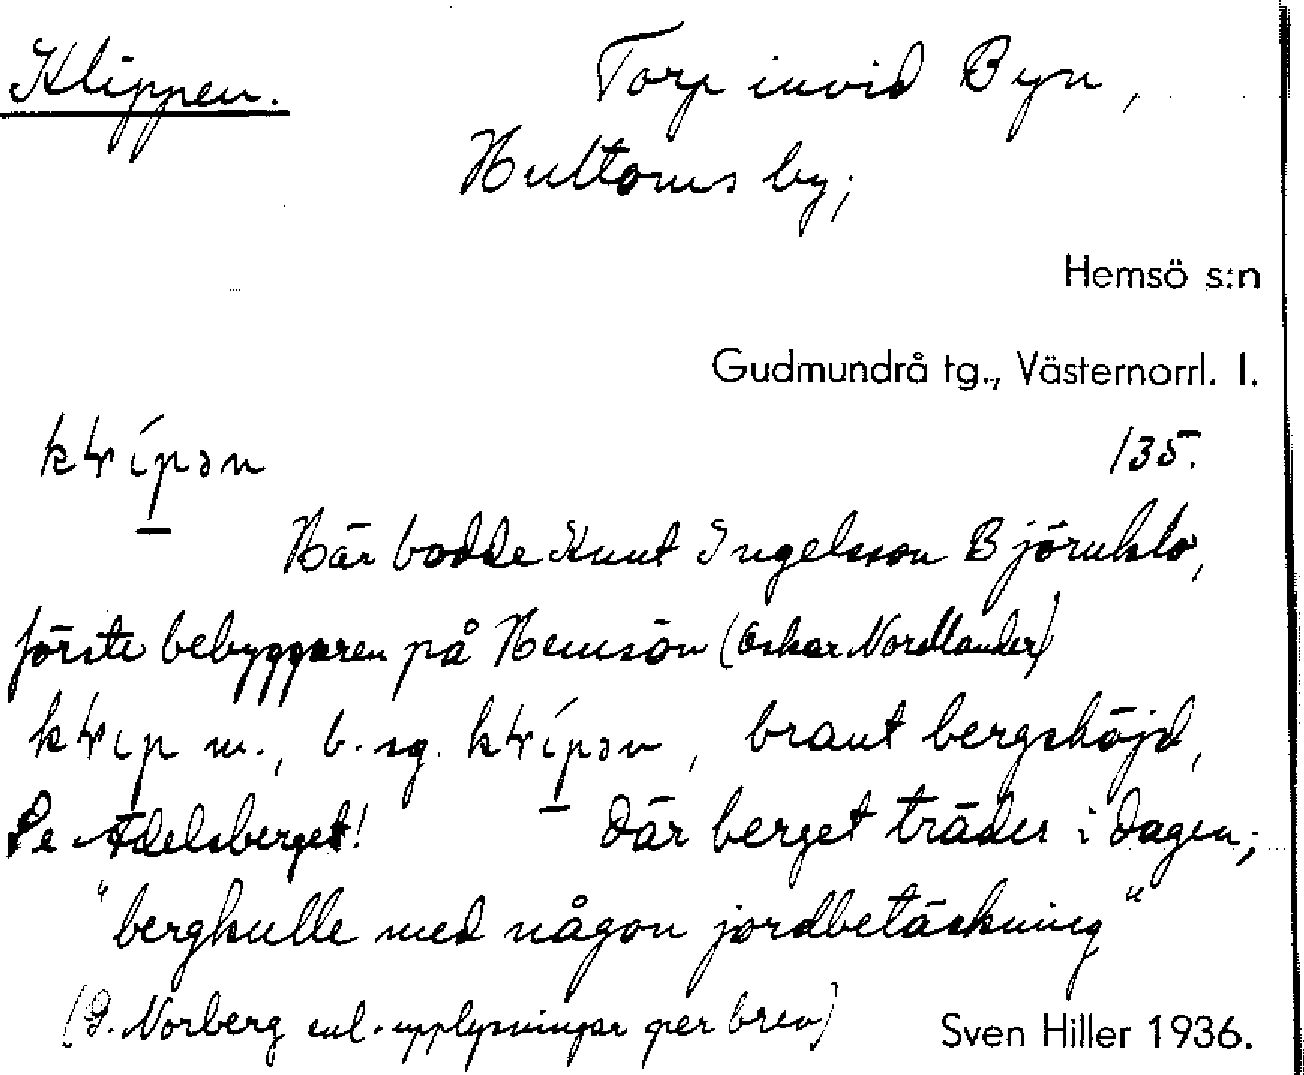 Klippen. Torp invid Byn,
Hultoms by;
Hemsö s:n
Gudmundrå tg., Västernorrl. l.
135.
Här bodde Knut Ingelsson Björnklo,
förste bebyggaren på Hemsön (Oskar Nordlander)
m., b. sg. , brant bergshöjd,
Se Adelsberget! där berget träder i dagen;
"bergkulle med någon jordbetäckning"
(G. Norberg enl. upplysningar per brev) Sven Hiller 1936.